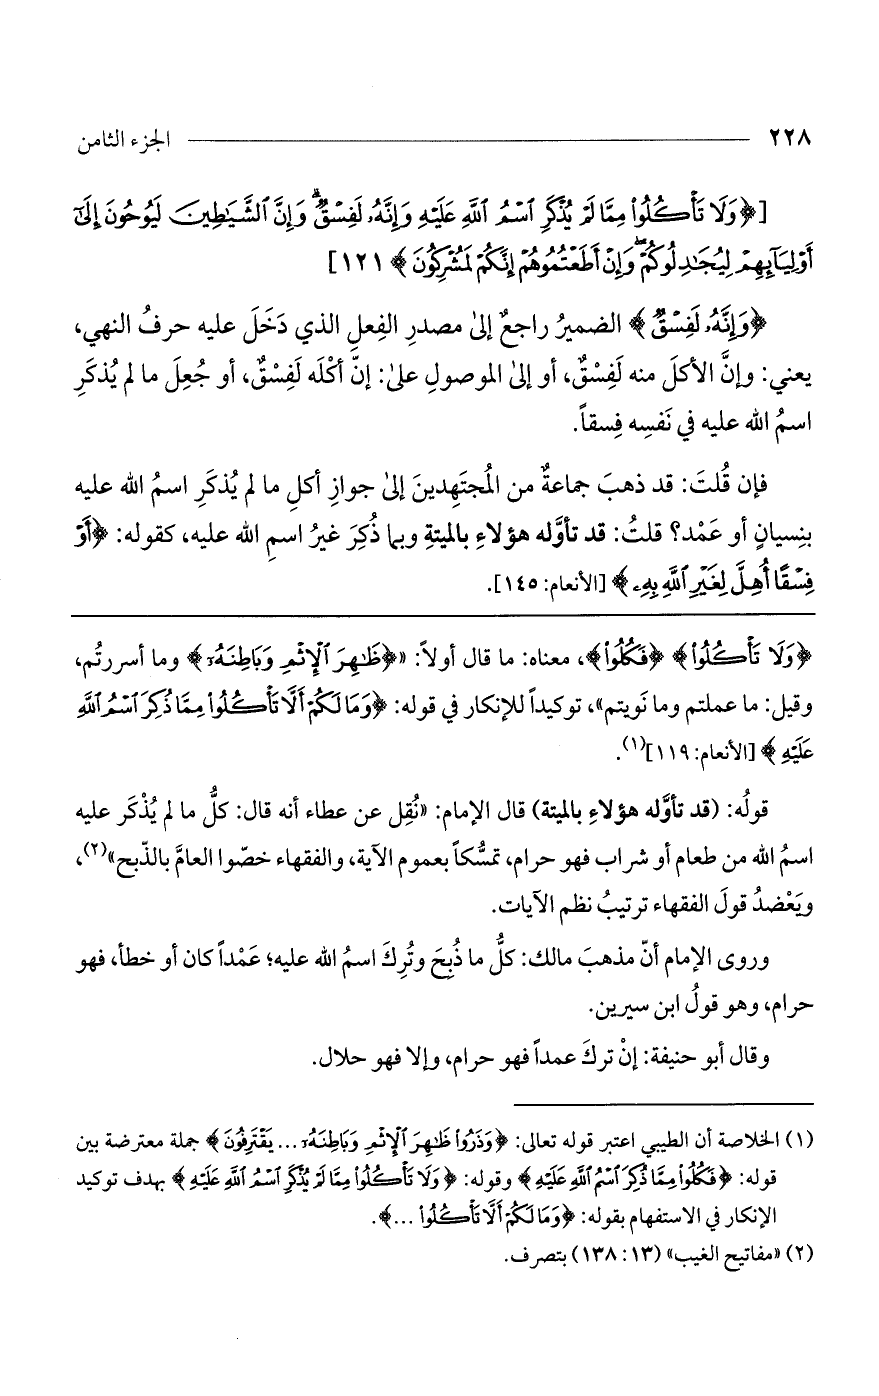 ٢٢٨ الجزء الثامن
[﴿وَلَا تَأْكُلُوا مِمَّا لَمْ يُذْكَرِ اسْمُ اللَّهِ عَلَيْهِ وَإِنَّهُ لَفِسْقٌ وَإِنَّ الشَّيَاطِينَ لَيُوحُونَ إِلَى
أَوْلِيَائِهِمْ لِيُجَادِلُوكُمْ وَإِنْ أَطَعْتُمُوهُمْ إِنَّكُمْ لَمُشْرِكُونَ﴾ ١٢١]
﴿وَإِنَّهُ لَفِسْقٌ﴾ الضميرُ راجعٌ إلىٰ مصدرِ الفِعلِ الذي دَخَلَ عليه حرفُ النهي،
يعني: وإنَّ الأكلَ منه لَفِسْقٌ، أو إلىٰ الموصولِ علىٰ: إنّ أكْلَه لَفِسْقٌ، أو جُعِلَ ما لم يُذكَرِ
اسمُ الله عليه في نَفسِه فِسقاً.
فإن قُلتَ: قد ذهبَ جماعةٌ من المُجتَهِدينَ إلىٰ جوازِ أكلِ ما لم يُذكَرِ اسمُ الله عليه
بنِسيانٍ أو عَمْد؟ قلتُ: قد تأوَّله هؤلاءِ بالميتةِ وبما ذُكِرَ غيرُ اسمِ الله عليه، كقوله: ﴿أَوْ
فِسْقًا أُهِلَّ لِغَيْرِ اللَّهِ بِهِ﴾ [الأنعام: ١٤٥].
﴿وَلَا تَأْكُلُوا﴾ ﴿فَكُلُوا﴾، معناه: ما قال أولاً: «﴿ظَاهِرَ الْإِثْمِ وَبَاطِنَهُ﴾ وما أسررتُم،
وقيل: ما عملتم وما نَويتم»، توكيداً للإنكار في قوله: ﴿وَمَا لَكُمْ أَلَّا تَأْكُلُوا مِمَّا ذُكِرَ اسْمُ اللَّهِ
عَلَيْهِ﴾ [الأنعام: ١١٩](١).
قولُه: (قد تأوَّله هؤلاءِ بالميتة) قال الإمام: «نُقِل عن عطاء أنه قال: كلُّ ما لم يُذْكَر عليه
اسمُ الله من طعام أو شراب فهو حرام، تمسُّكاً بعموم الآية، والفقهاء خصّوا العامَّ بالذّبح»(٢)،
ويَعْضدُ قولَ الفقهاء ترتيبُ نظم الآيات.
وروى الإمام أنّ مذهبَ مالك: كلُّ ما ذُبِحَ وتُرِكَ اسمُ الله عليه؛ عَمْداً كان أو خطأ، فهو
حرام، وهو قولُ ابن سيرين.
وقال أبو حنيفة: إنْ تركَ عمداً فهو حرام، وإلا فهو حلال.
(١) الخلاصة أن الطيبي اعتبر قوله تعالى: ﴿وَذَرُوا ظَاهِرَ الْإِثْمِ وَبَاطِنَهُ ... يَقْتَرِفُونَ﴾ جملة معترضة بين
قوله: ﴿فَكُلُوا مِمَّا ذُكِرَ اسْمُ اللَّهِ عَلَيْهِ﴾ وقوله: ﴿وَلَا تَأْكُلُوا مِمَّا لَمْ يُذْكَرِ اسْمُ اللَّهِ عَلَيْهِ﴾ بهدف توكيد
الإنكار في الاستفهام بقوله: ﴿وَمَا لَكُمْ أَلَّا تَأْكُلُوا ...﴾.
(٢) «مفاتيح الغيب» (١٣: ١٣٨) بتصرف.